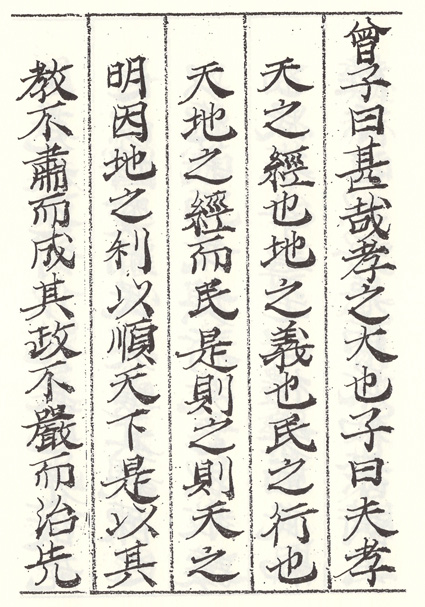 曾子曰甚哉孝之大也子曰夫孝
天之經也地之義也民之行也
天地之經而民是則之則天之
明因地之利以順天下是以其
教不肅而成其政不嚴而治先